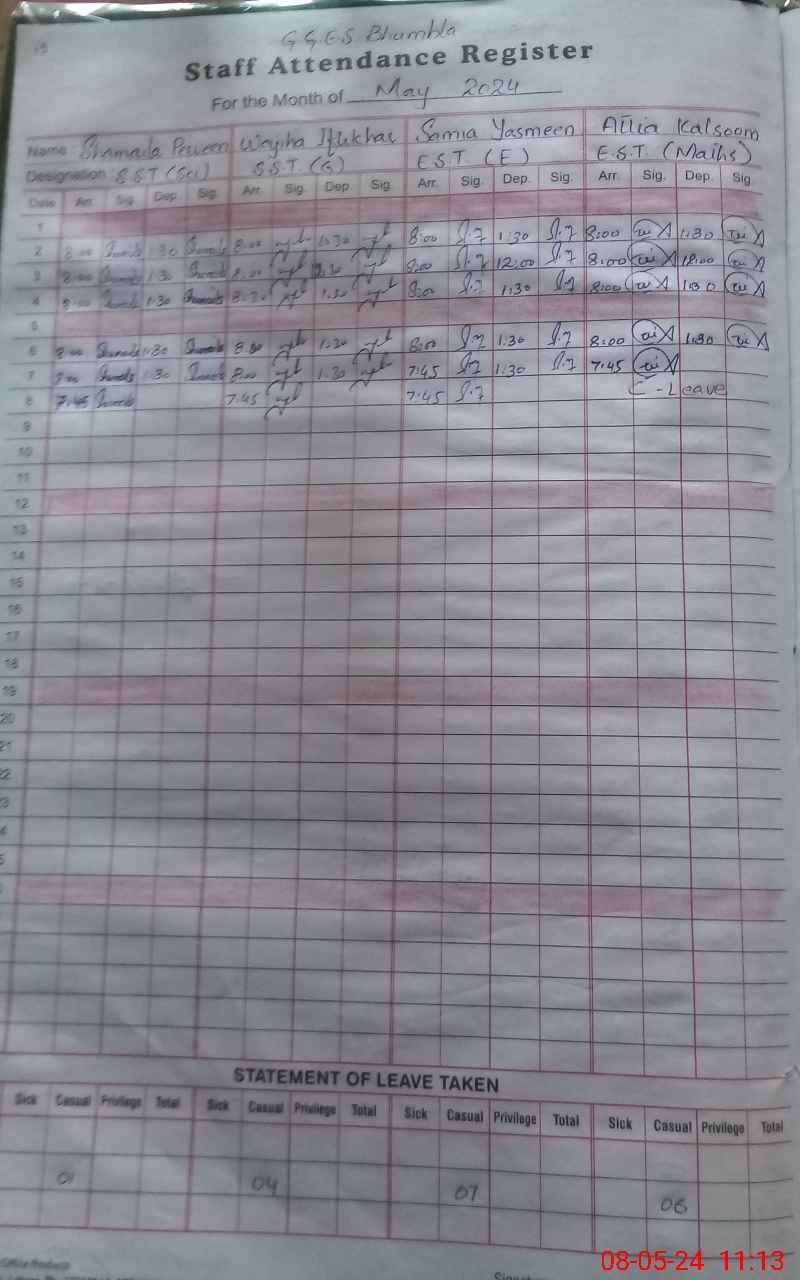 19
G.G.E.S Bhumbla
Staff Attendance Register
For the Month of May 2024
Name Shamaila Perveen Wajiha Iftikhar Samia Yasmeen Attia Kalsoom
Designation S.S.T (Sci) S.S.T. (G) E.S.T. (E) E.S.T. (Maths)
Date Arr. Sig. Dep. Sig. Arr. Sig. Dep. Sig. Arr. Sig. Dep. Sig. Arr. Sig. Dep. Sig
1
2 8:00 1:30 8:00 1:30 8:00 1:30 8:00 1:30
3 8:00 1:30 8:00 8:00 12:00 8:00 12:00
4 8:00 1:30 1:30 8:00 1:30 8:00 1:30
5
6 8:00 1:30 8:00 1:30 8:00 1:30 8:00 1:30
7 1:30 8:00 1:30 7:45 1:30 7:45
8 7:45 7:45 7:45 C-Leave
9
10
11
12
13
14
15
16
17
18
19
20
21
22
3
4
5
STATEMENT OF LEAVE TAKEN
Sick Casual Privilege Total Sick Casual Privilege Total Sick Casual Privilege Total Sick Casual Privilege Total
01 04 07 06
Office Products
08-05-24 11:13